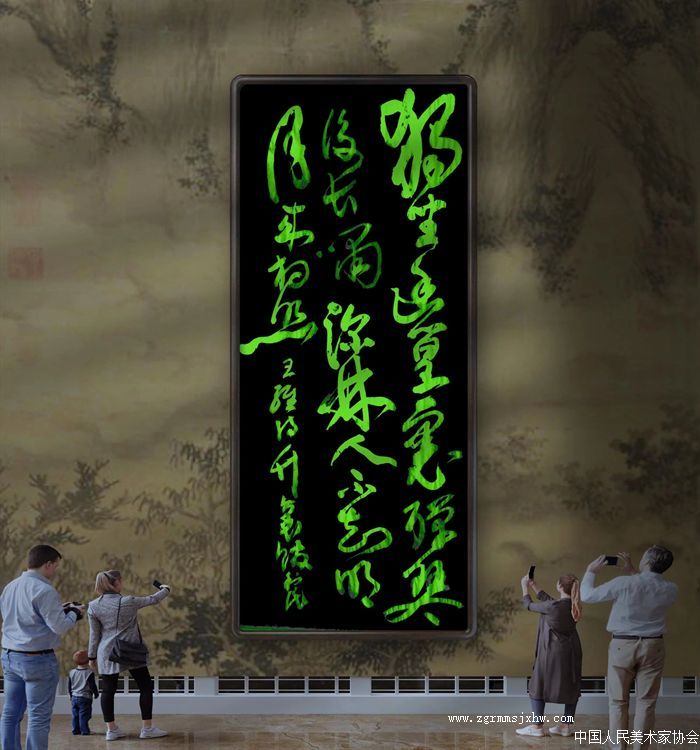 獨坐幽篁裏彈琴
復长嘯深林人不知明
月来相照王維诗
www.zgrmmsjxhw.com
中国人民美术家协会